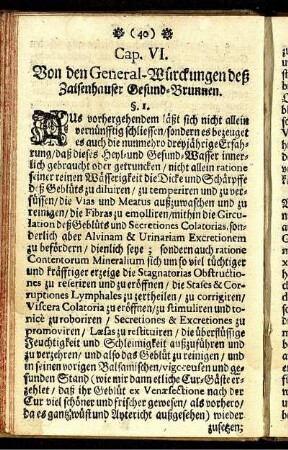 (40)
Cap. VI.
Von den General-Würckungen deß
Zaisenhauser Gesund-Brunnen.
§. 1.
AUs vorhergehendem läßt sich nicht allein
vernünfftig schliessen/ sondern es bezeuget
es auch die nunmehro dreyjährige Erfah-
rung/ daß dieses Heyl- und Gesund-Wasser inner-
lich gebraucht oder getruncken/ nicht allein ratione
seiner reinen Wässerigkeit die Dicke und Schärpffe
deß Geblüts zu diluiren/ zu temperiren und zu ver-
süssen/ die Vias und Meatus außzuwaschen und zu
reinigen/ die Fibras zu emolliren/ mithin die Circu-
lation deß Geblüts und Secretiones Colatorias, son-
derlich aber Alvinam & Urinariam Excretionem
zu befördern/ dienlich seye; sondern auch ratione
Contentorum Mineralium sich um so viel tüchtiger
und kräfftiger erzeige die Stagnatorias Obstructio-
nes zu reseriren und zu eröffnen/ die Stases & Cor-
ruptiones Lymphales zu zertheilen/ zu corrigiren/
Viscera Colatoria zu eröffnen/ zu stimuliren und to-
nicè zu roboriren/ Secretiones & Excretiones zu
promoviren/ Læsas zu restituiren/ die überflüssige
Feuchtigkeit und Schleimigkeit außzuführen und
zu verzehren/ und also das Geblüt zu reinigen/ und
in seinen vorigen Balsamischen/ vigoreusen und ge-
sunden Stand (wie mir dann etliche Cur-Gäste er-
zehlet/ daß ihr Geblüt ex Venæsectione nach der
Cur viel schöner und frischer gewesen/ als vorhero/
da es gantz wüst und Aytericht außgesehen) wieder
zusetzen;